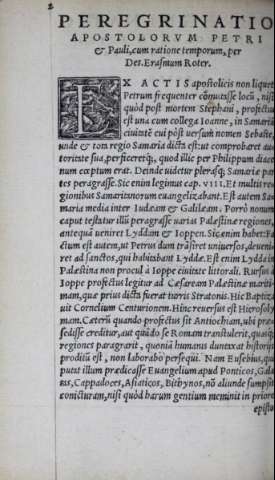 2
PEREGRINATIO
APOSTOLORVM PETRI
& Pauli, cum ratione temporum, per
Des. Erasmum Roter.
EX ACTIS apostolicis non liquet
Petrum frequenter cōmutasse locū, nisi
quòd post mortem Stephani, profectus
est una cum collega Ioanne, in Samariā
ciuitatē cui pòst uersum nomen Sebaste,
unde & tota regio Samaria dicta est: ut comprobaret au
toritate sua, perficeretq́;, quod illic per Philippum diaco
num cœptum erat. Deinde uidetur plerasq́; Samariæ par
tes peragrasse. Sic enim legimus cap. VIII. Et multis re
gionibus Samaritanorum euangelizabant. Est autem Sa
maria media inter Iudæam & Galilæam. Porrò nonum
caput testatur illū peragrasse uarias Palæstinæ regiones,
antequā ueniret Lyddam & Ioppen. Sic enim habet: Fa
ctum est autem, ut Petrus dum trāsiret uniuersos, deueni
ret ad sanctos, qui habitabant Lyddæ. Est enim Lydda in
Palæstina non procul à Ioppe ciuitate littorali. Rursus à
Ioppe profectus legitur ad Cæsaream Palæstinæ mariti-
mam, quæ prius dicta fuerat turris Stratonis. Hic Baptiza
uit Cornelium Centurionem. Hinc reuersus est Hierosoly
mam. Cæterū quando profectus sit Antiochiam, ubi præ
sedisse creditur, aut quādo se Romam transtulerit, quasq́;
regiones paragrarit, quoniā humanis duntaxat historijs
proditū est, non laborabo persequi. Nam Eusebius, qui
putat illum prædicasse Euangelium apud Ponticos, Gala
tas, Cappadoces, Asiaticos, Bithynos, nō aliunde sumpsit
coniecturam, nisi quòd harum gentium meminit in priore
episto